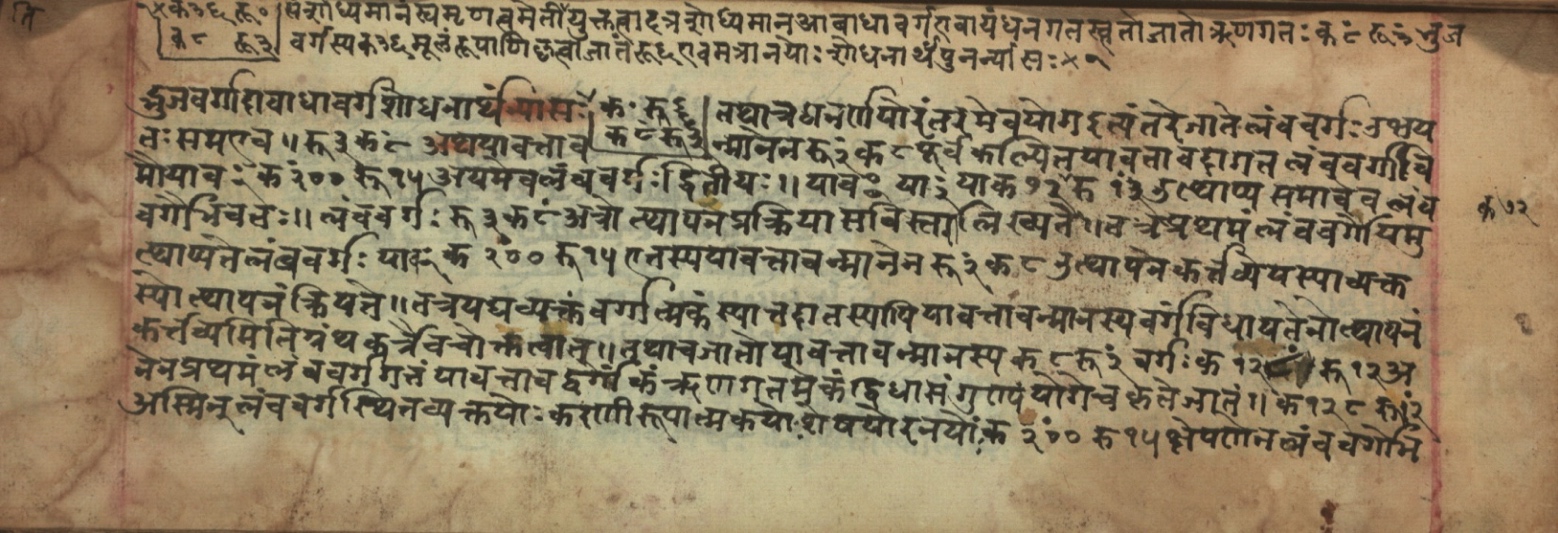 क३६ रू० संशोध्यमानं स्वमृणत्वमेतीत्युक्तत्वादत्र शोध्यमान आबाधावर्ग एवायं धनगतस्त्वतो जातो ऋणगतः क ८ं रू ३ं भुज
क ८ रू ३ वर्गस्य क ३६ मूलं रूपाणि कृत्वा जातं रू ६ एवमत्रानयोः शोधनार्थं पुनर्न्यासः
द्भुजवर्गादाबाधावर्गशोधनार्थं न्यासः क ॰ रू ६ तथात्र धनर्णयोरंतरमेव योग इत्यंतरे जाते लंबवर्गः उभय
क ८ं रू ३ं
तः सम एव ॥ रू ३ क ८ं अथ यावत्ताव न्मानेन रू २ क ८ पूर्वकल्पितयावत्तावदागतलंबवर्गावि
मौ याव ॰ क २ं०० रू १५ अयमेव लंबवर्गः द्वितीयः ॥ याव ॰ या २ं या क ७२ रू १ं३ उत्थाप्य समावेव लंब
क ७२
वर्गौ भवतः ॥ लंबवर्गः रू ३ क ८ं अत्रोत्थापनप्रक्रिया सविस्तरा लिख्यते ॥ तत्र प्रथमं लंबवर्गोयमु
त्थाप्यते लंबवर्गः याव क २ं०० रू १५ एतस्य यावत्तावन्मानेन रू २ं क ८ उत्थापनं कर्त्तव्यं यस्याव्यक्त
स्योत्थापनं क्रियते ॥ तत्र यद्यव्यक्तं वर्गात्मकं स्यात्तदा तस्यापि यावत्तावन्मानस्य वर्गं विधाय तेनोत्थापनं
कर्त्तव्यमिति ग्रंथकृत्रैवोक्तत्वात् ॥ तथा च जातो यावत्तावन्मानस्य क ८ रू २ं वर्गः क १२८ं रू १२ अ
नेन प्रथमं लंबवर्गगतं यावत्तावद्वर्गांकं ऋणगतमेकं द्विधा संगुण्य योगे च कृते जातं ॥ क १२८ रू १ं२
अस्मिन् लंबवर्गस्थितव्यक्तयोः करणीरूपात्मकयोः शेषयोरनयोः क २ं०० रू १५ क्षेपणेन लंबवर्गोभि